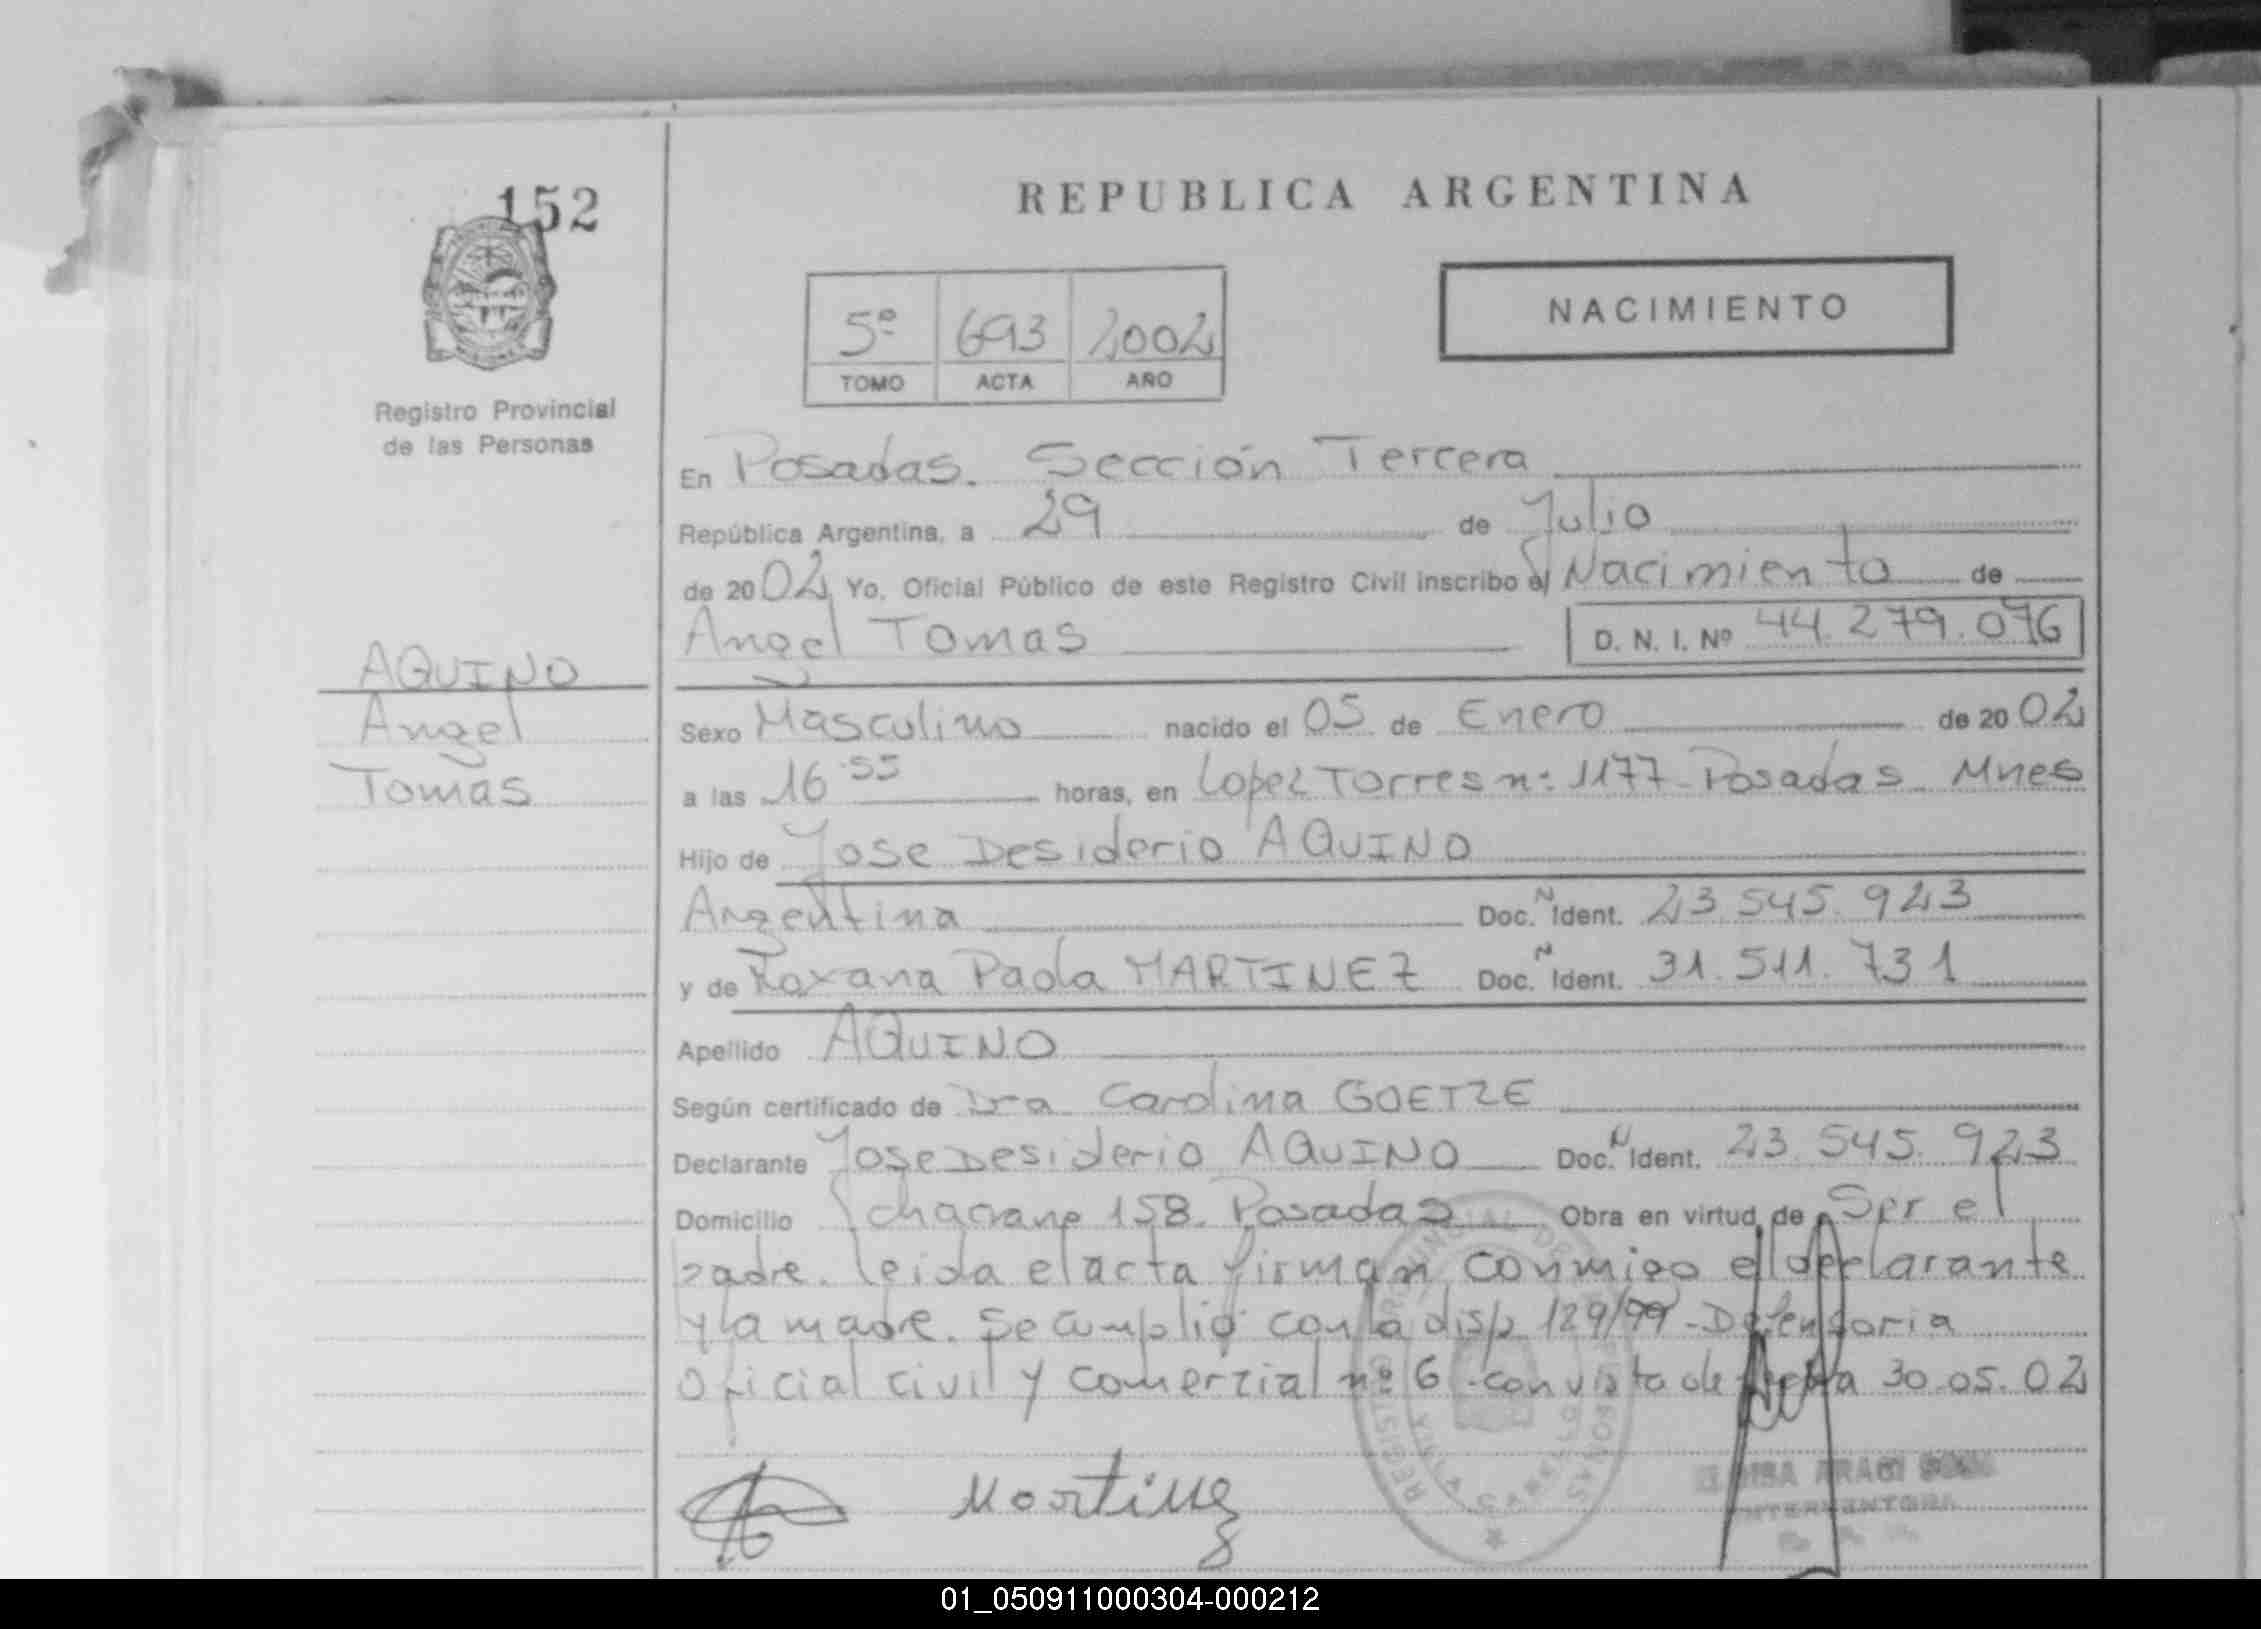 152
REPUBLICA ARGENTINA
NACIMIENTO
5º 693 2002
TOMO ACTA AÑO
Registro Provincial
de las Personas
En Posadas. Sección Tercera
República Argentina, a 29 de Julio
de 2002 Yo, Oficial Público de este Registro Civil inscribo el Nacimiento de
Angel Tomas D. N. I. Nº 44.279.076
AQUINO
Angel
Tomas
Sexo Masculino nacido el 05 de Enero de 2002
a las 16 55 horas, en Lopez Torres nº 1177 - Posadas - Mnes
Hijo de Jose Desiderio AQUINO
Argentina Doc. N Ident. 23.545.923
y de Roxana Paola MARTINEZ Doc. N Ident. 31.511.731
Apellido AQUINO
Según certificado de Dra Carolina GOETZE
Declarante Jose Desiderio AQUINO Doc. N Ident. 23.545.923
Domicilio 158. Posadas Obra en virtud de Ser el
padre. leida el acta firman conmigo el declarante
y la madre. Se cumplió con la disp 129/99 - Defensoria
Oficial civil y comercial nº 6 - con vista de fecha 30.05.02
Martinez
REGISTRO PROVINCIAL DE LAS PERSONAS
INTERVENTORA
01_050911000304-000212